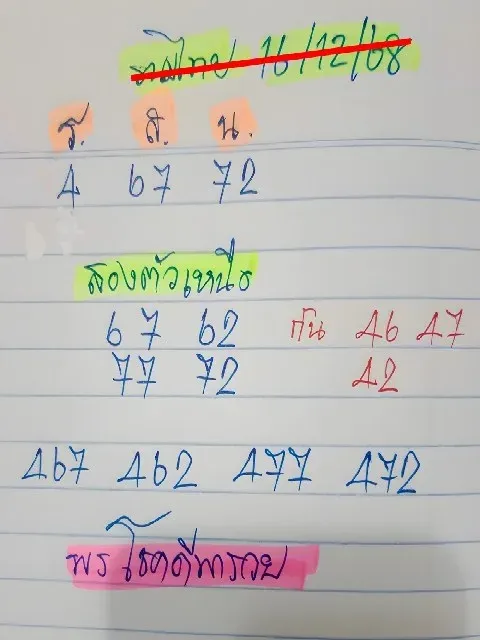 หนไทย 16/12/68
ร. ส. น.
4 67 72
สองตัวเหนือ
67 62 กัน 46 47
77 72 42
467 462 477 472
พร โชคดีพารวย